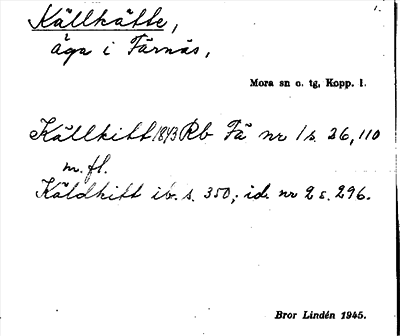 Källhätte,
1.
äga i Färnäs,
Mora sn o. tg, Kopp. l.
Källhitt 1843 Rb Fä nr 1 s. 26, 110
m. fl.
Käldhitt ib. s. 350; id. nr 2 s. 296.
Bror Lindén 1945.